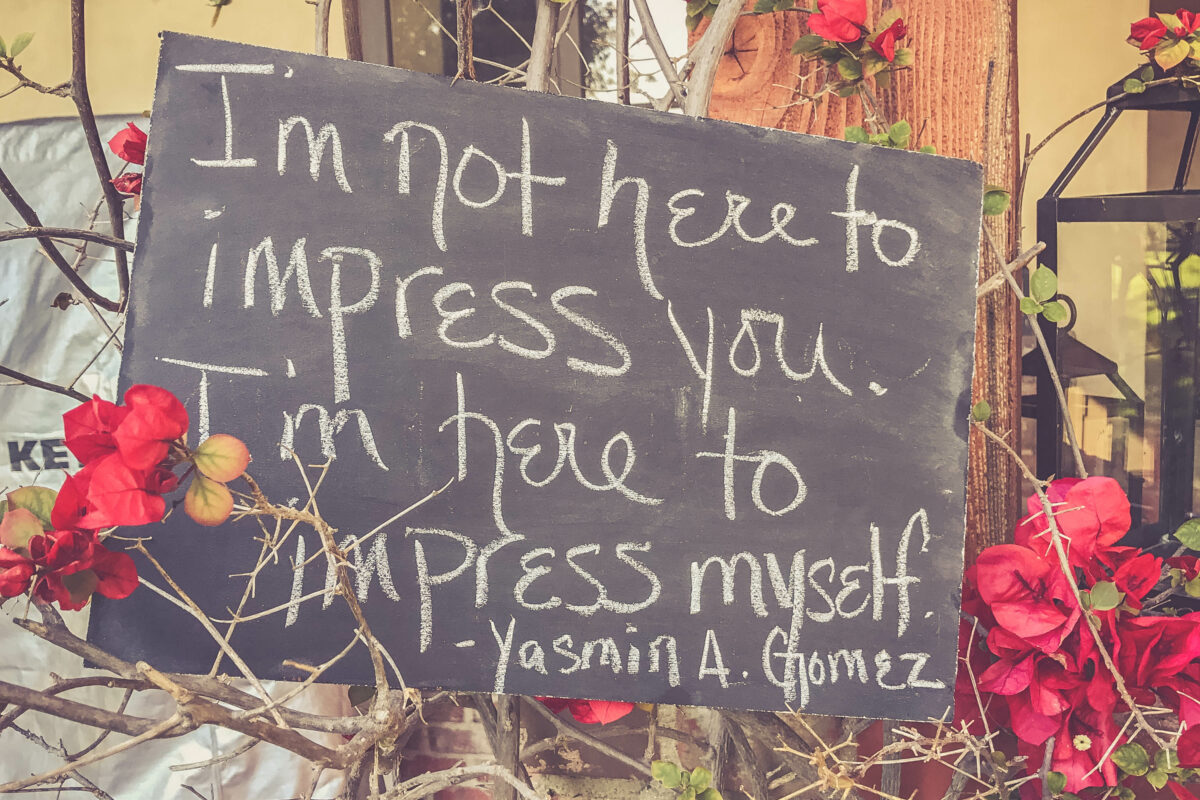 I'm not here to
impress you.
I'm here to
impress myself.
- Yasmin A. Gomez
KE